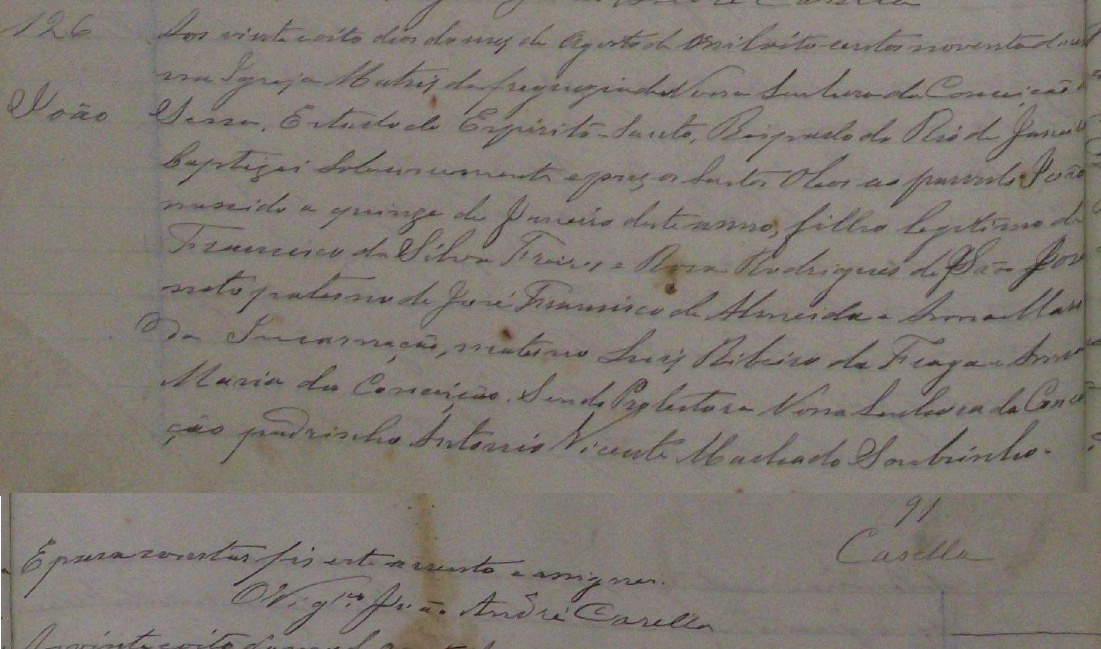 André Casella
126
Aos vinte oito dias do mez de Agosto de mil oito centos noventa
na Igreja Matriz da freguezia de Nossa Senhora da Conceição da
João
Serra, Estado do Espirito-Santo, Bispado do Rio de Janeiro
baptizei solemnemente e puz os Santos Oleos ao parvulo João
nascido a quinze de Janeiro deste anno, filho legitimo de
Francisco da Silva Freires e Rosa Rodrigues de São José
neto paterno de José Francisco de Almeida e Anna Maria
da Incarnação, materno Luiz Ribeiro da Fraga e Anna
Maria da Conceição. Sendo Protectora Nossa Senhora da Concei
ção padrinho Antonio Vicente Machado Sombrinho.
91
Casella
E para constar fiz este assento e assignei.
O Vigrº João André Casella
vinte oito